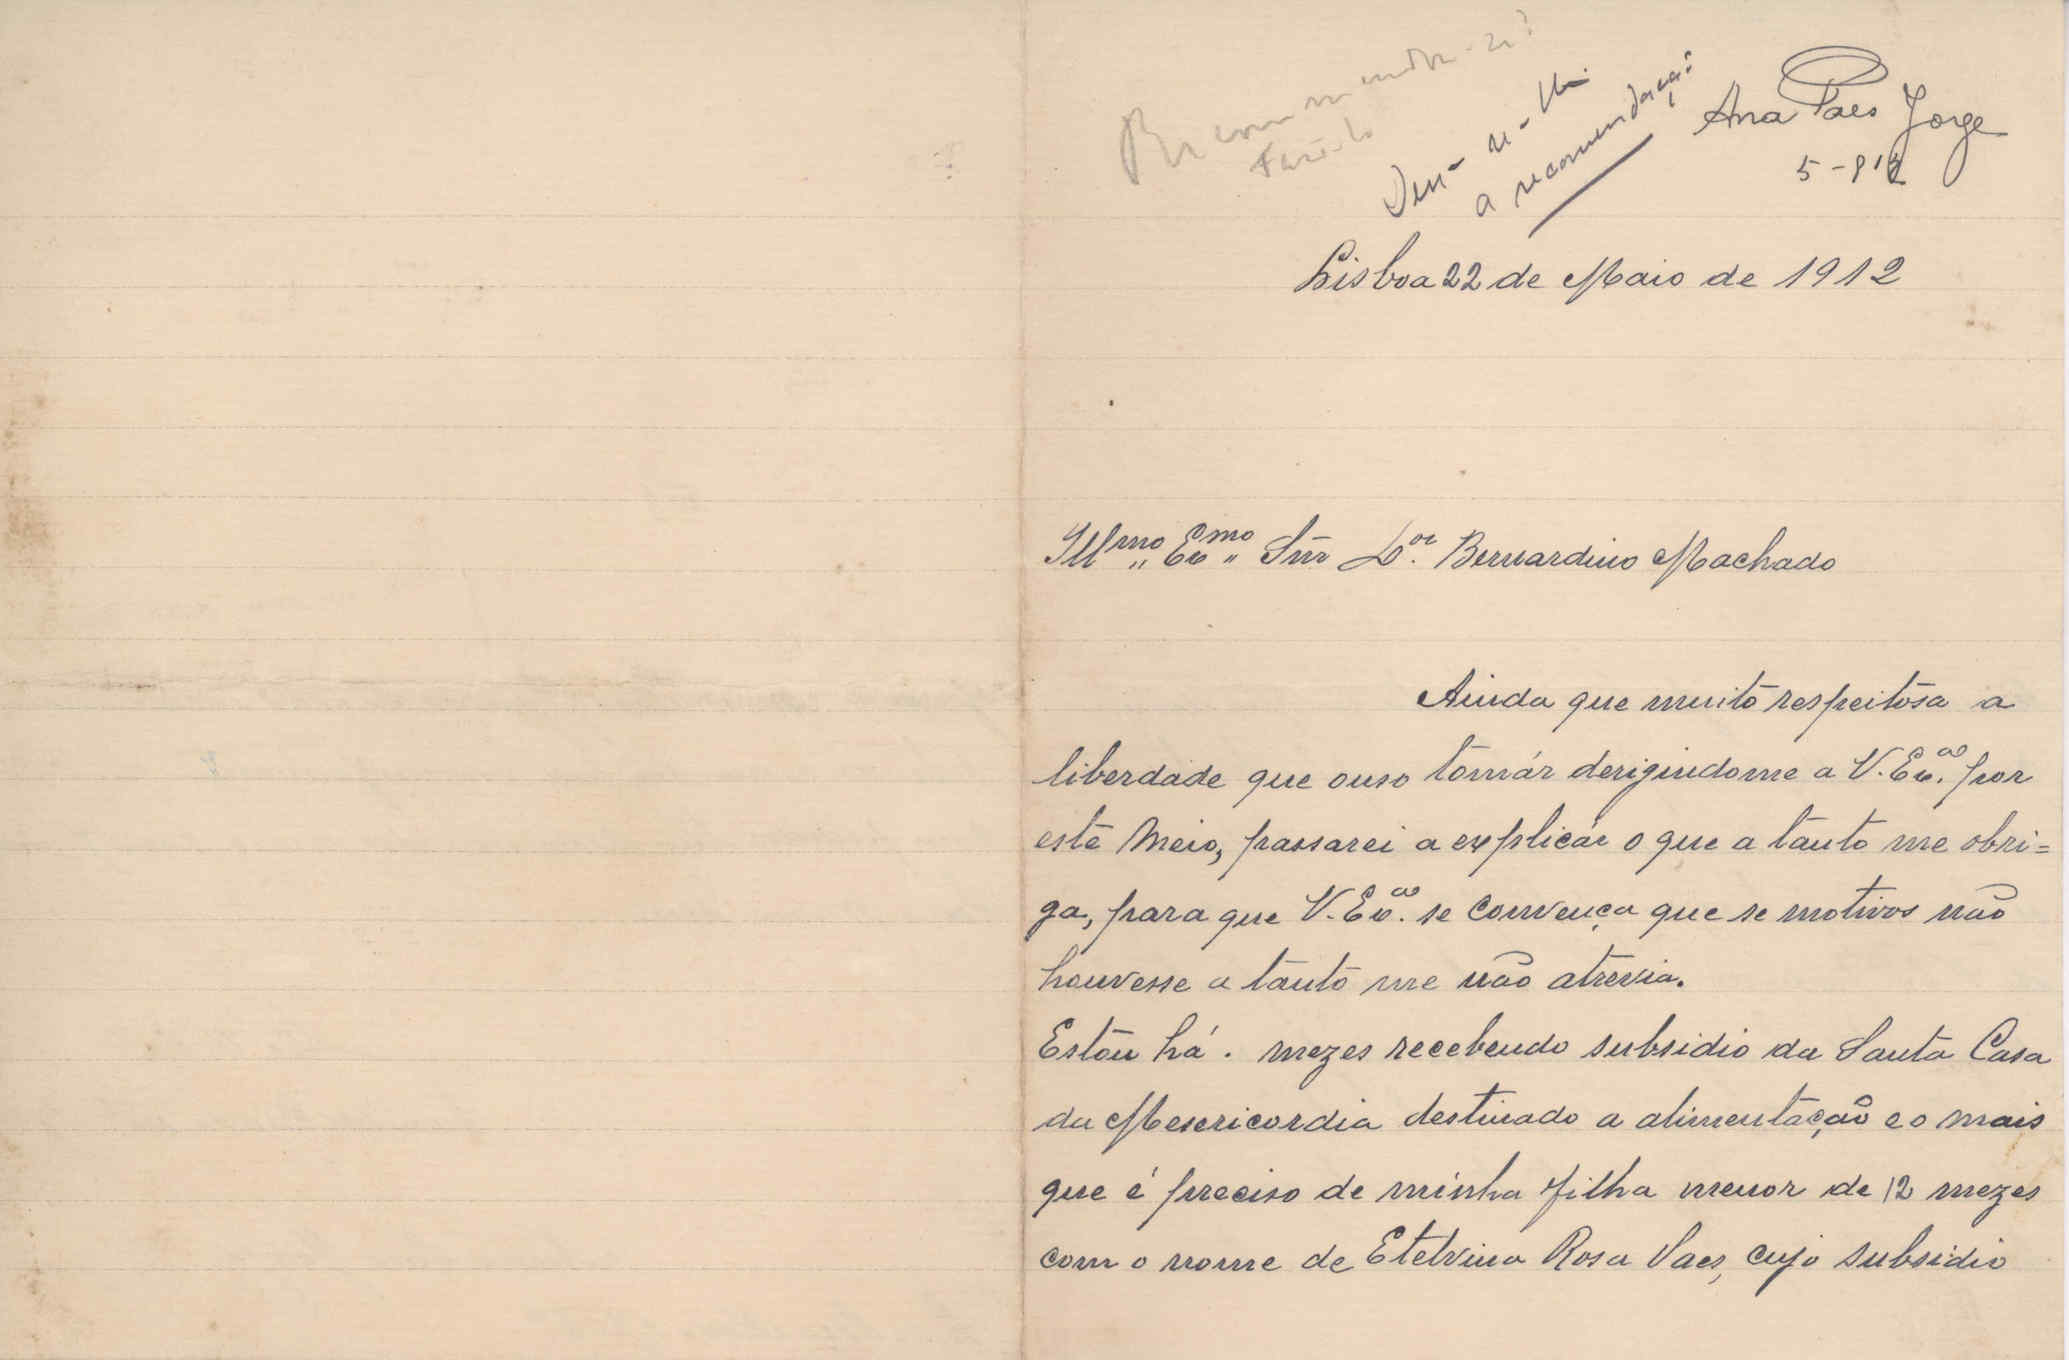 Deu-se-lhe
a recomendação
Ana Paes Jorge
5-912
Lisboa 22 de Maio de 1912
Illmo Exmo Snr Dor. Bernardino Machado
Ainda que muito respeitosa a
liberdade que ouso tomár derigindome a V. Exa. por
este meio, passarei a explicár o que a tanto me obri=
ga, para que V. Exa. se convença que se motivos não
houvesse a tanto me não atrevia.
Estou há . mezes recebendo subsidio da Santa Casa
da Mesericordia destinado a alimentação e o mais
que é preciso de minha filha menor de 12 mezes
com o nome de Etelvina Rosa Paes, cujo subsidio